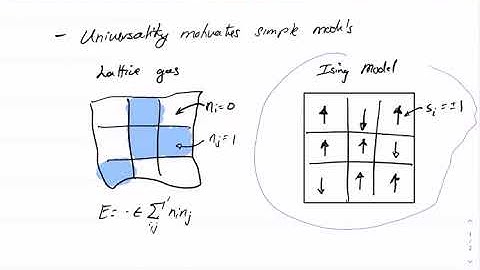 - Universality motivates simple models
Lattice gas
n_i=0
n_j=1
E= -ϵ Σ'_ij n_i n_j
Ising Model
s_i=±1
1/2